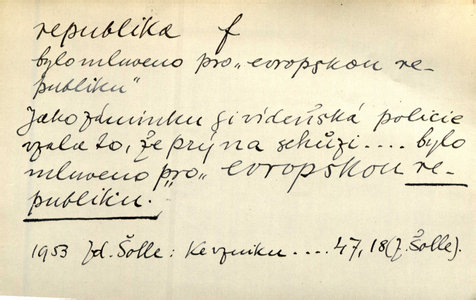 republika f
bylo mluveno pro „evropskou re-
publiku"
Jako záminku si vídeňská policie
vzala to, že prý na schůzi .... bylo
mluveno „pro „ evropskou re-
publiku.
1953 Zd. Šolle: Ke vzniku .... 47, 18 (Z. Šolle).